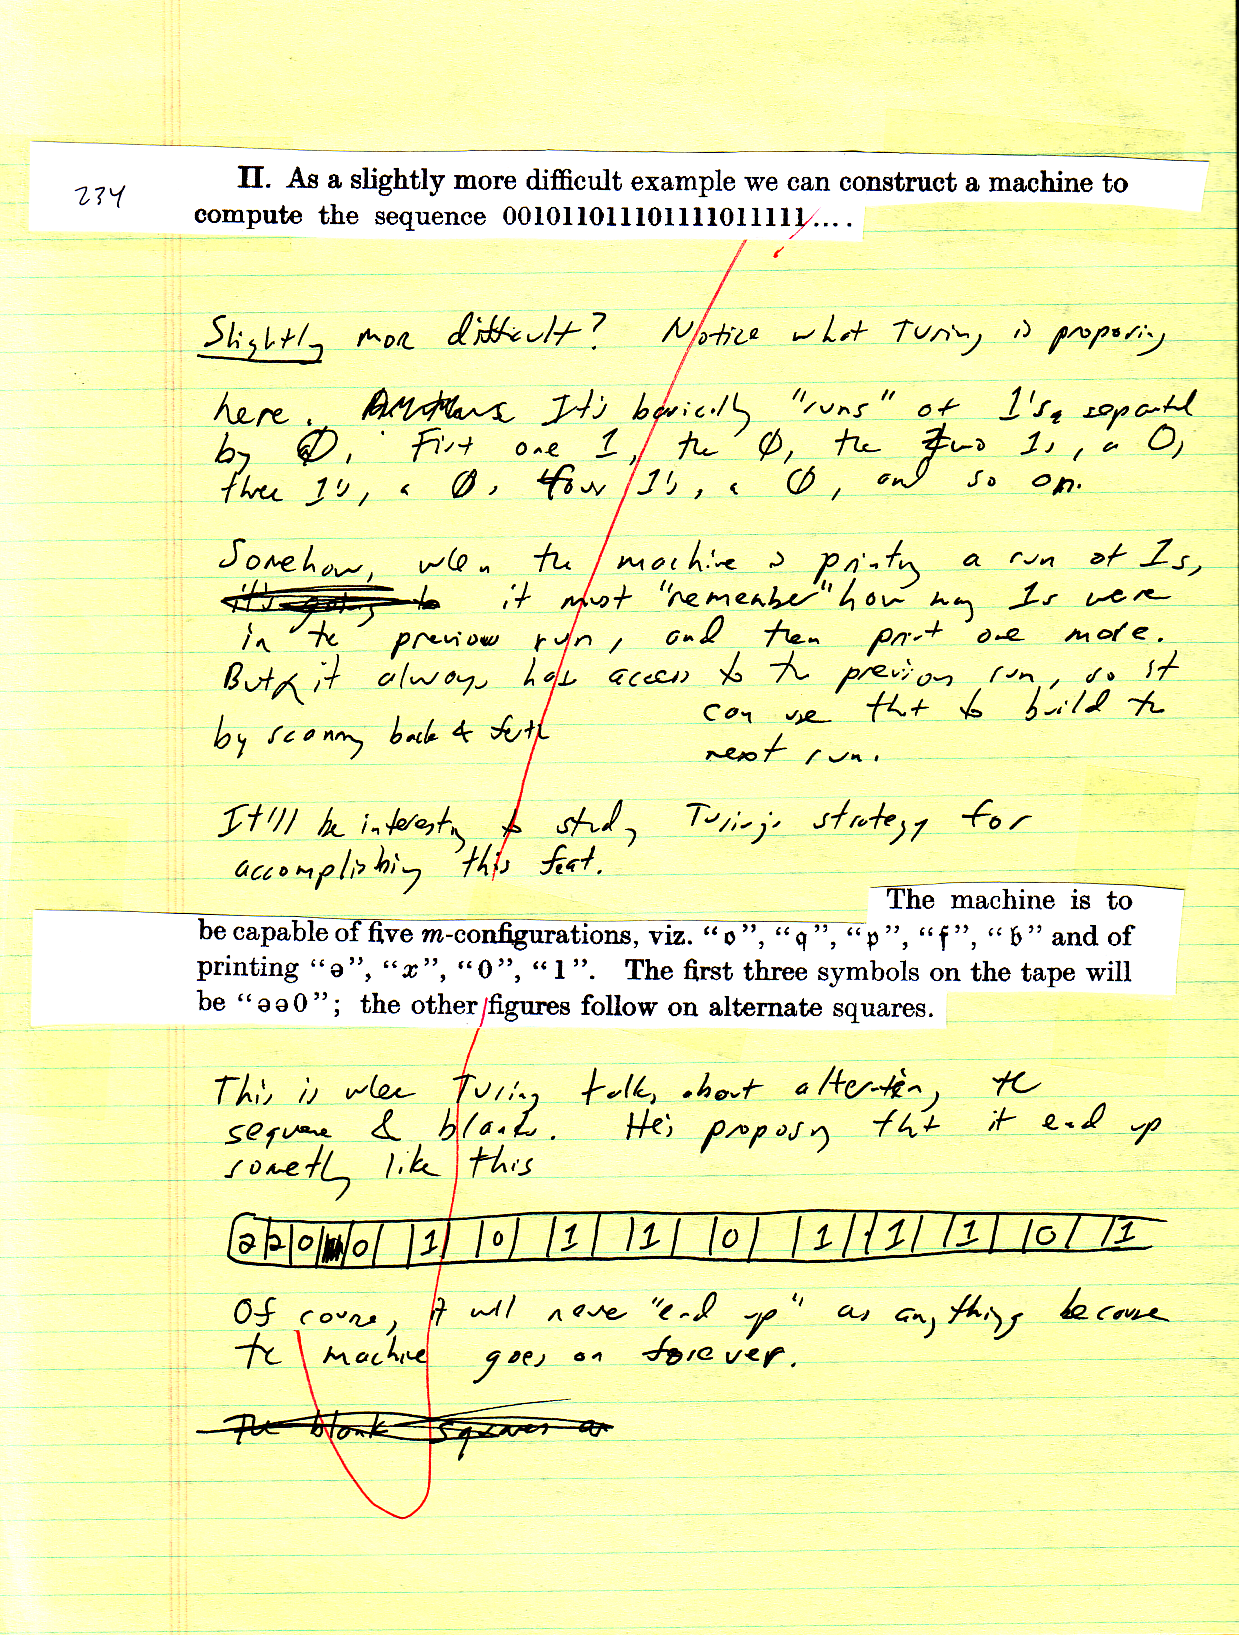 234
II. As a slightly more difficult example we can construct a machine to
compute the sequence 001011011101111011111....
Slightly more difficult? Notice what Turing is proposing
here. It's basically "runs" of 1's, separated
by 0. First one 1, the 0, the two 1s, a 0,
three 1's, a 0, four 1's, a 0, and so on.
Somehow, when the machine is printing a run of 1s,
it's going to it must "remember" how many 1s were
in the previous run, and then print one more.
But it always has access to the previous run, so it
by scanning back & forth can use that to build the
next run.
It'll be interesting to study Turing's strategy for
accomplishing this feat.
The machine is to
be capable of five m-configurations, viz. "o", "q", "p", "f", "b" and of
printing "ə", "x", "0", "1". The first three symbols on the tape will
be "əə0"; the other figures follow on alternate squares.
This is where Turing talks about alternating the
sequence & blanks. He's proposing that it end up
something like this
ə ə 0 0 1 0 1 1 0 1 1 1 0 1
Of course, it will never "end up" as anything because
the machine goes on forever.
The blank squares are